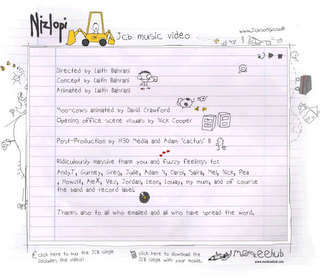 Nizlopi
Jcb music video
www.jcbsong.co.uk
Directed by Laith Bahrani
Concept by Laith Bahrani
Animated by Laith Bahrani
Moo-cows animated by David Crawford
Opening office scene visuals by Nick Cooper
Post-Production by H3D Media and Adam 'cactus' B
Ridiculously massive thank you and fuzzy feelings to:
AndyT, Gurney, Greg, Julie, Adam Y, Carol, Saira, Mel, Nick, Pea
, Howski, AleX, Vez, Jordan, Leon, Louby, my mum, and of course
the band and record label.
Thanks also to all who emailed and all who have spread the word.
click here to buy the JCB single
(includes the video)
click here to download the
JCB single with your mobile.
monkeehub
www.monkeehub.com